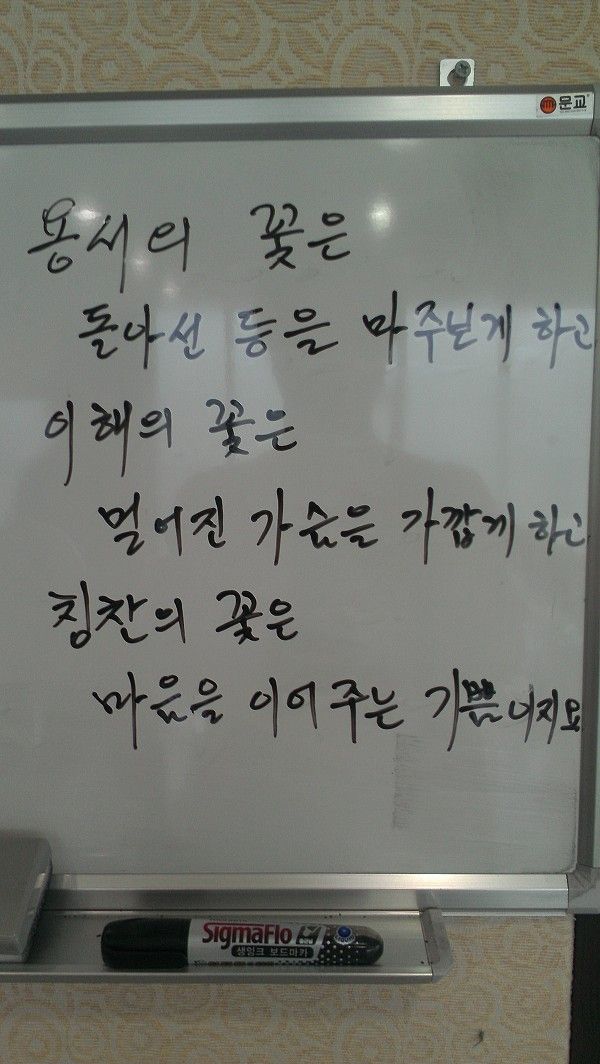 문교
용서의 꽃은
돌아선 등을 마주보게 하고
이해의 꽃은
멀어진 가슴을 가깝게 하고
칭찬의 꽃은
마음을 이어주는 기쁨이지요
SigmaFlo
생잉크 보드마카